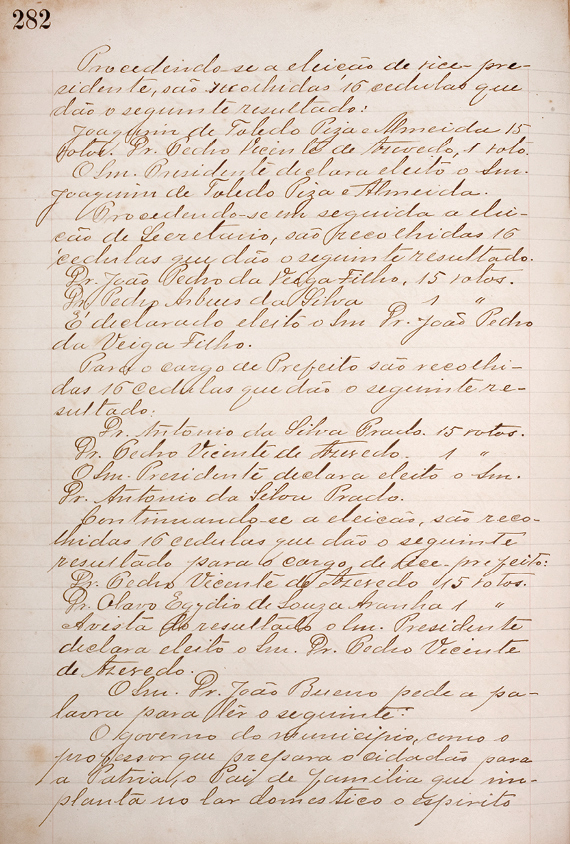 282
Procedendo-se a eleição de vice-pre-
sidente, são recolhidas 16 cedulas que
dão o seguinte resultado:
Joaquim de Toledo Piza e Almeida 15
votos. Dr. Pedro Vicente de Azevedo, 1 voto.
O Snr. Presidente declara eleito o Snr.
Joaquim de Toledo Piza e Almeida.
Procedendo-se em seguida a elei-
ção de Secretario, são recolhidas 16
cedulas que dão o seguinte resultado.
Dr. João Pedro da Veiga Filho, 15 votos.
Dr. Pedro Arbues da Silva 1 "
É declarado eleito o Snr Dr. João Pedro
da Veiga Filho.
Para o cargo de Prefeito são recolhi-
das 16 cedulas que dão o seguinte re-
sultado:
Dr. Antonio da Silva Prado. 15 votos.
Dr. Pedro Vicente de Azevedo. 1 "
O Snr. Presidente declara eleito o Snr.
Dr. Antonio da Silva Prado.
Continuando-se a eleição, são reco-
lhidas 16 cedulas que dão o seguinte
resultado para o cargo de vice-prefeito:
Dr. Pedro Vicente de Azevedo 15 votos.
Dr. Olavo Egydio de Souza Aranha 1 "
Á vista do resultado o Snr. Presidente
declara eleito o Snr. Dr. Pedro Vicente
de Azevedo.
O Snr. Dr. João Bueno pede a pa-
lavra para lêr o seguinte:
O governo do municipio, como o
professor que prepara o cidadão para
a Patria, o Pai de familia que im-
planta no lar domestico o espirito